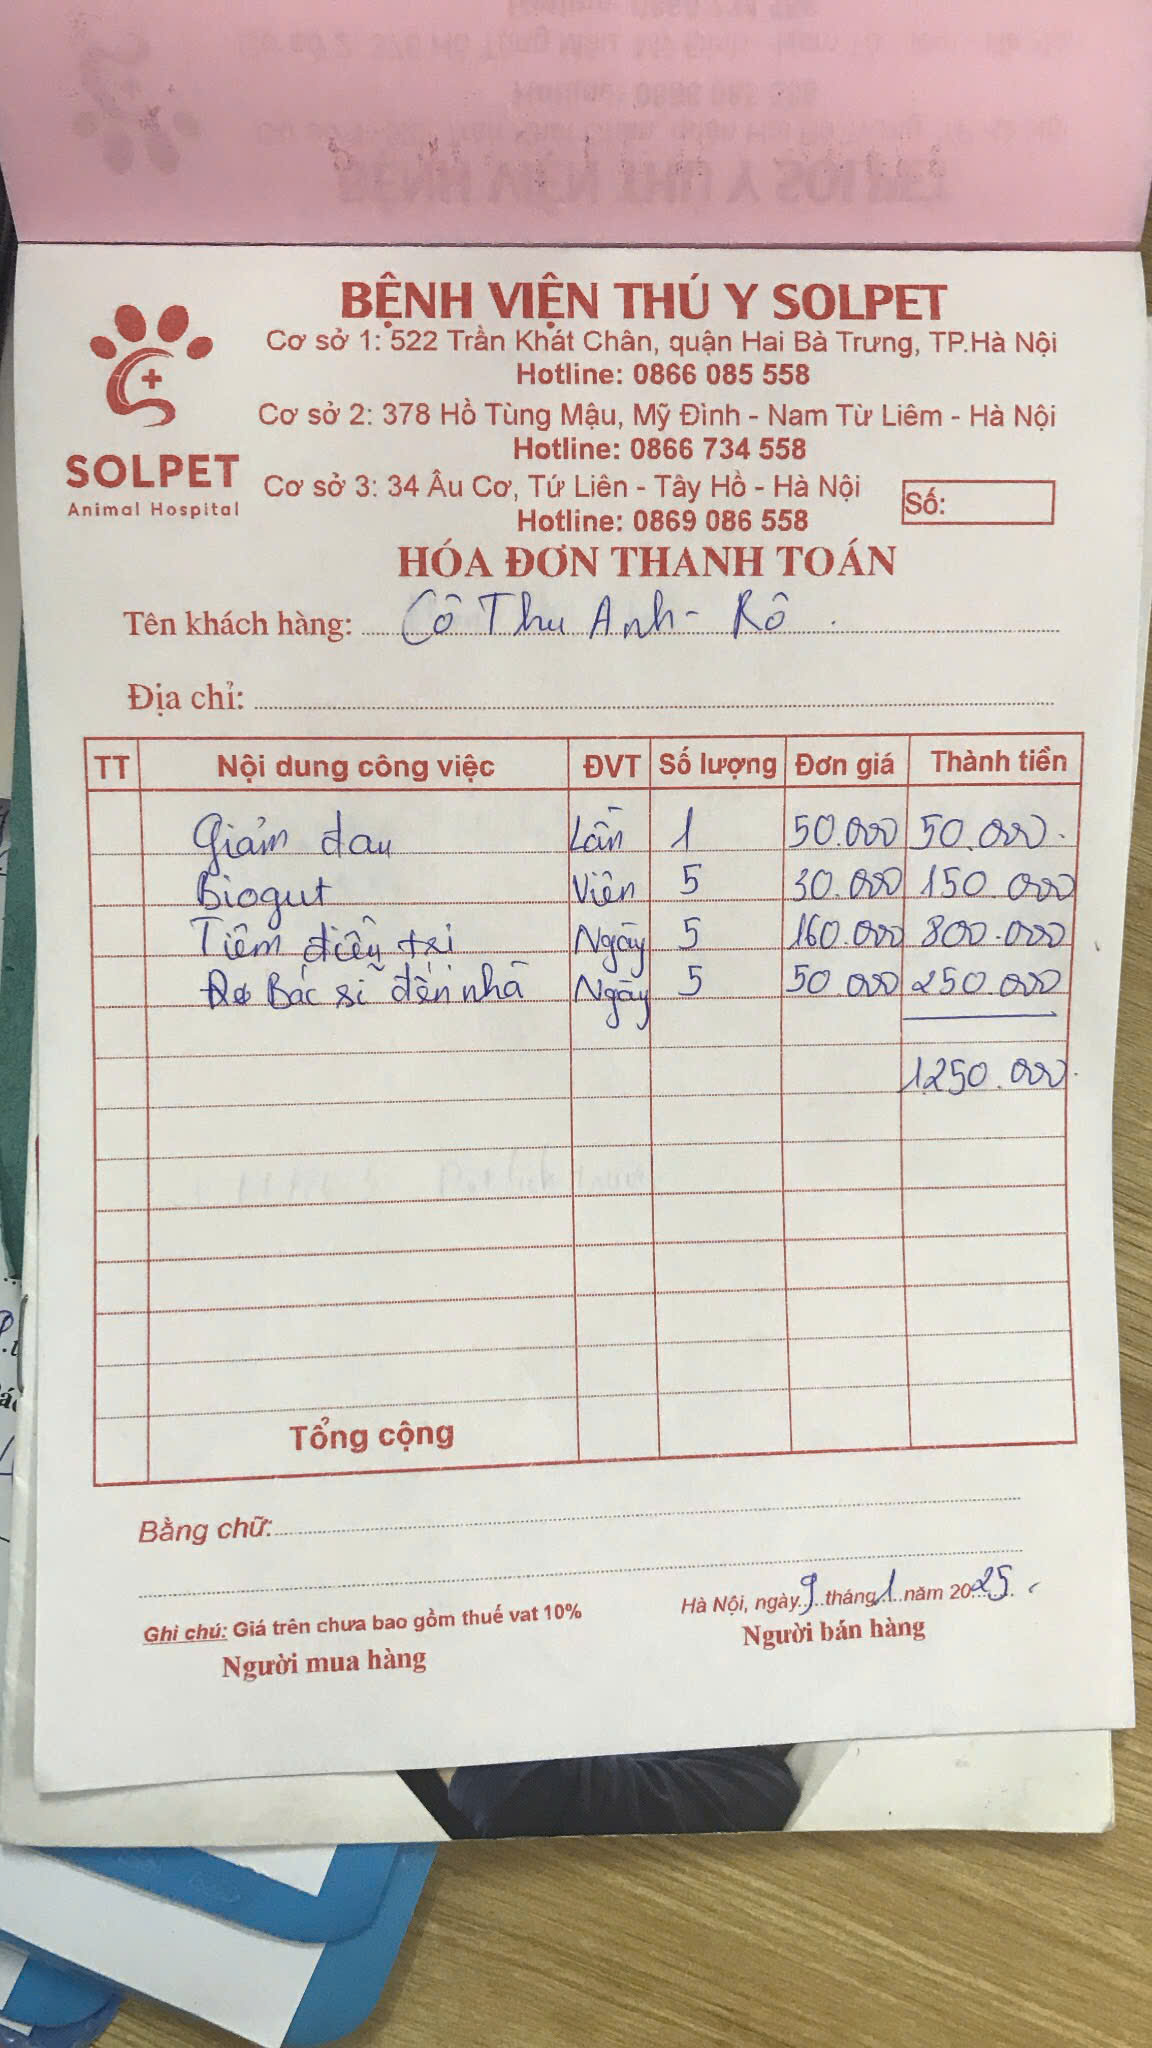 BỆNH VIỆN THÚ Y SOLPET
Cơ sở 1: 522 Trần Khát Chân, quận Hai Bà Trưng, TP.Hà Nội
Hotline: 0866 085 558
Cơ sở 2: 378 Hồ Tùng Mậu, Mỹ Đình - Nam Từ Liêm - Hà Nội
Hotline: 0866 734 558
SOLPET
Animal Hospital
Cơ sở 3: 34 Âu Cơ, Tứ Liên - Tây Hồ - Hà Nội
Số:
Hotline: 0869 086 558
HÓA ĐƠN THANH TOÁN
Tên khách hàng: Cô Thu Anh - Rô
Địa chỉ:
TT Nội dung công việc ĐVT Số lượng Đơn giá Thành tiền
Giảm đau Lần 1 50.000 50.000
Biogut Viên 5 30.000 150.000
Tiêm điều trị Ngày 5 160.000 800.000
Bác sĩ đến nhà Ngày 5 50.000 250.000
1250.000
Tổng cộng
Bằng chữ:
Hà Nội, ngày 9 tháng 1 năm 2025
Ghi chú: Giá trên chưa bao gồm thuế vat 10%
Người mua hàng Người bán hàng